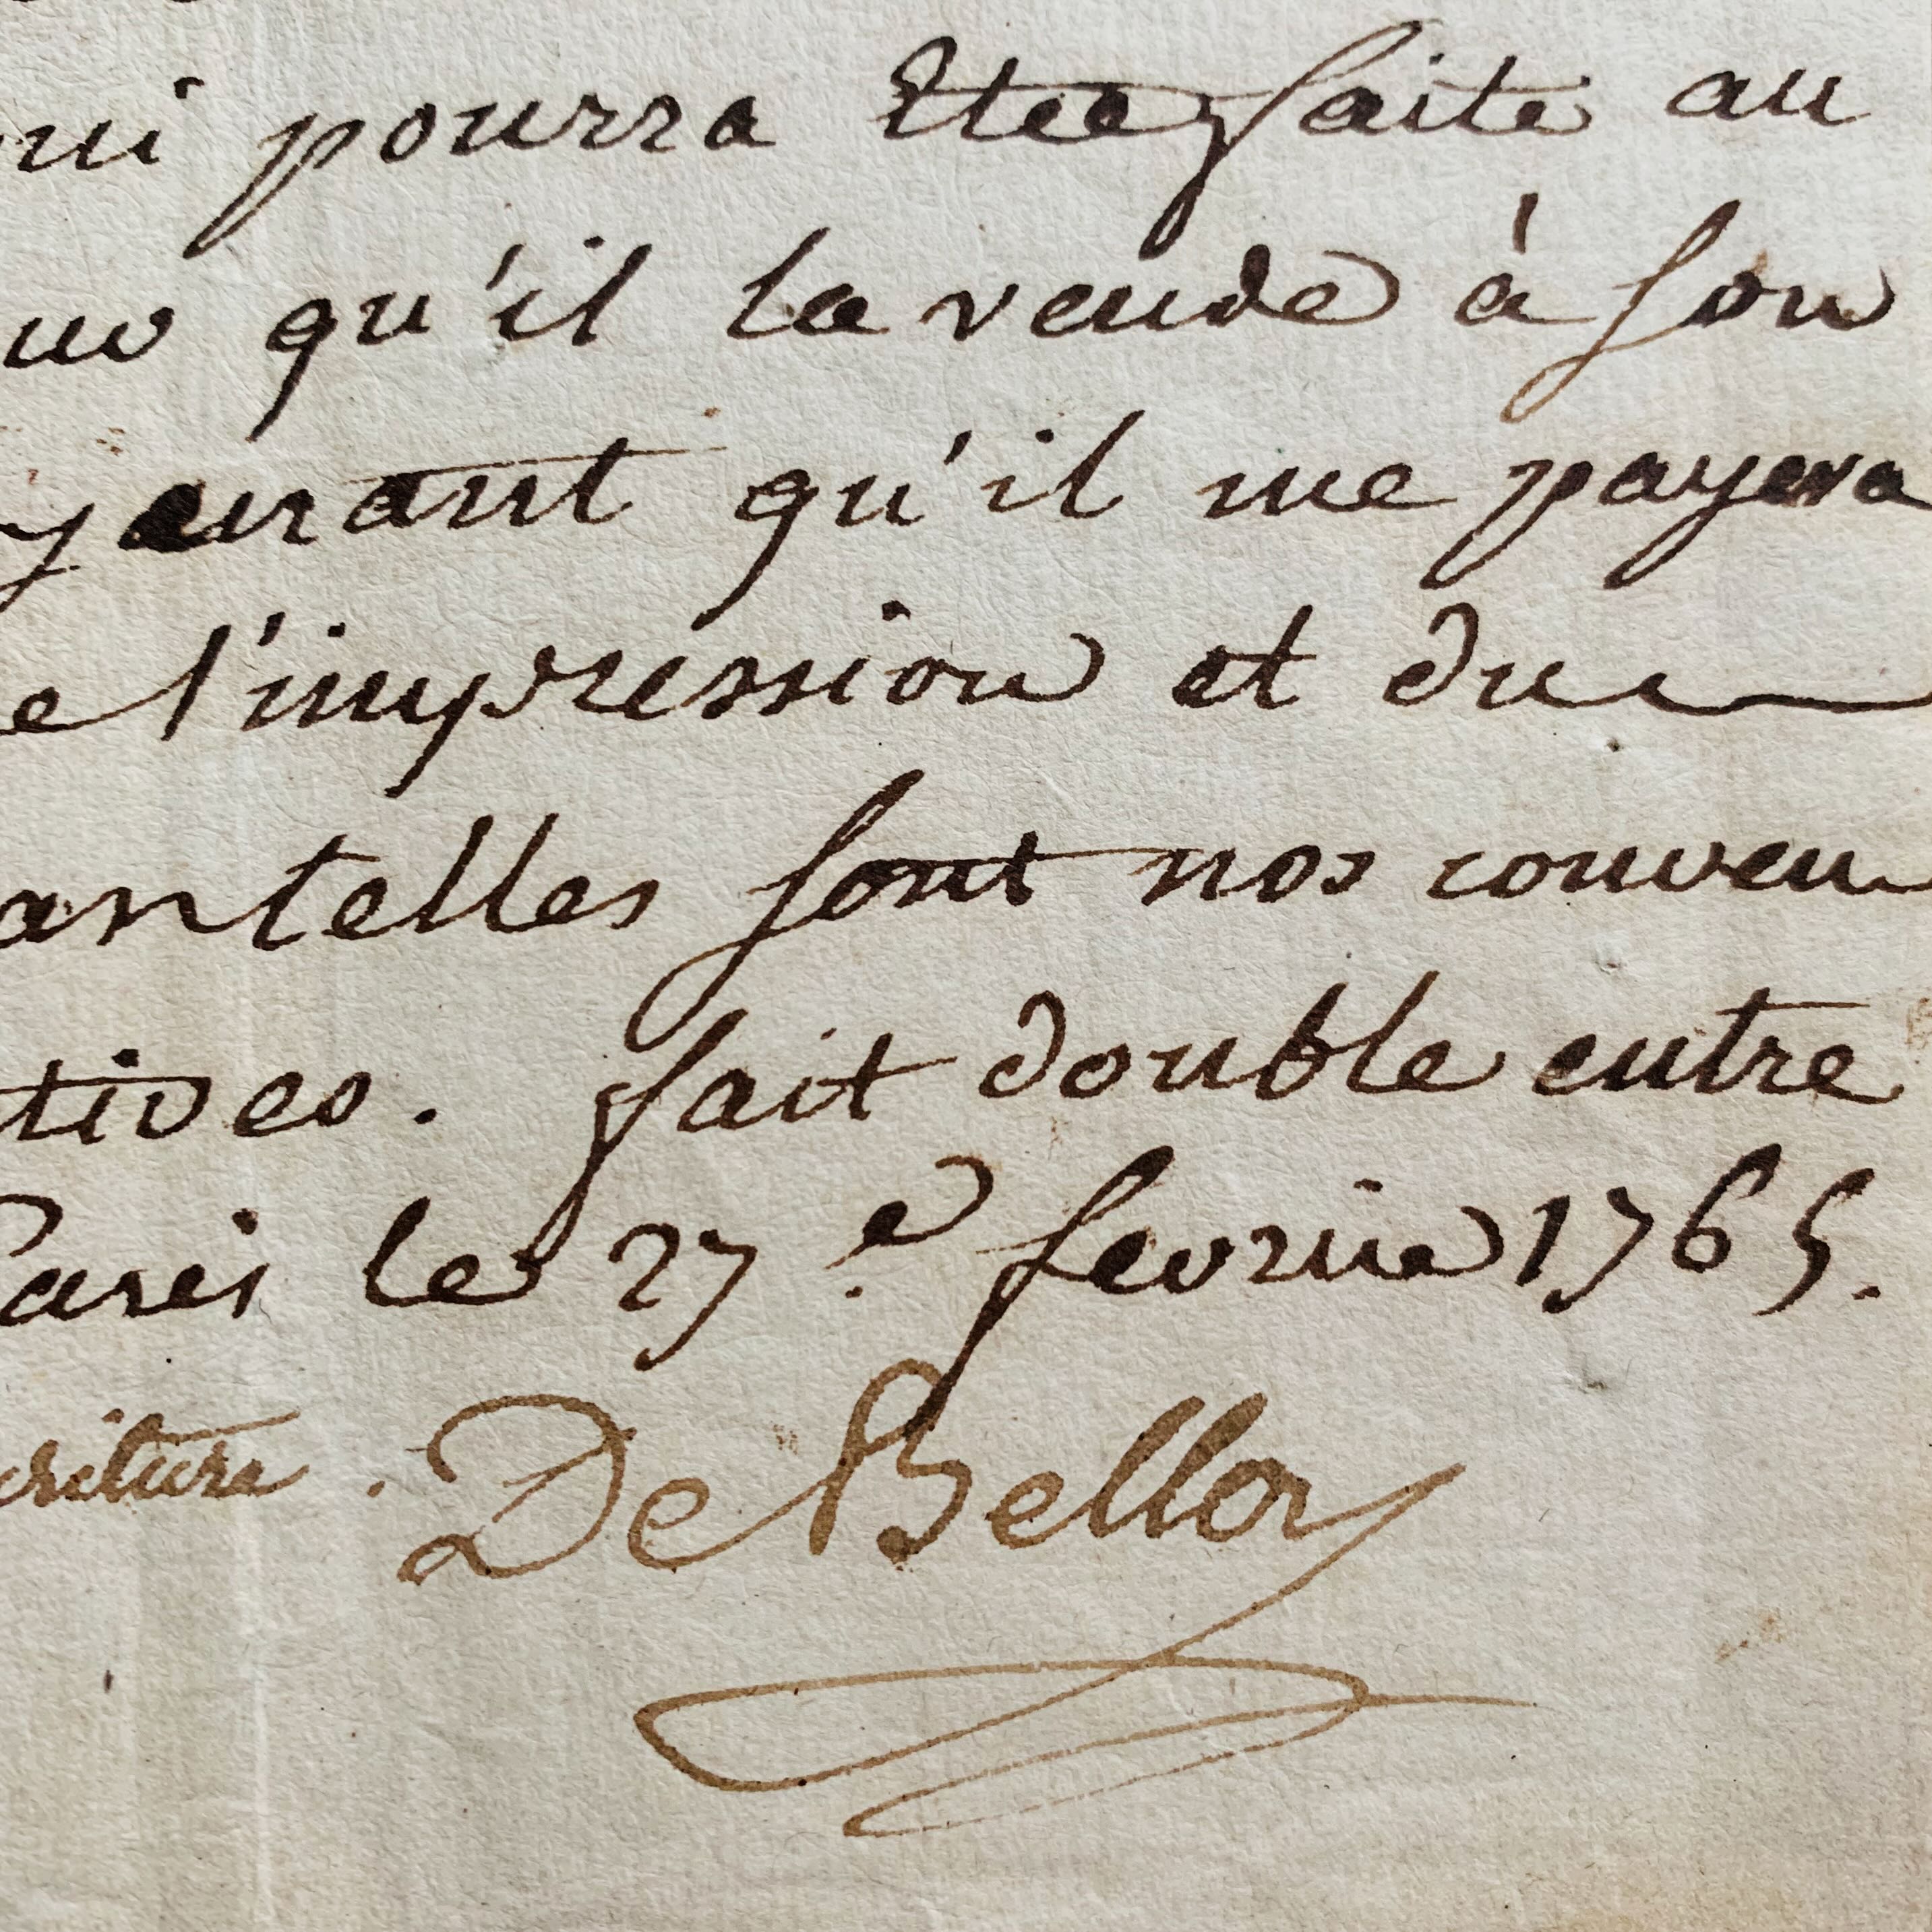 qui pourra Etre faite au
qu'il la vende à son
yenant qu'il me payera
e l'impression et du
telles sont nos conven
tives. fait double entre
Paris le 27e fevrier 1765.
criture. De Belloy